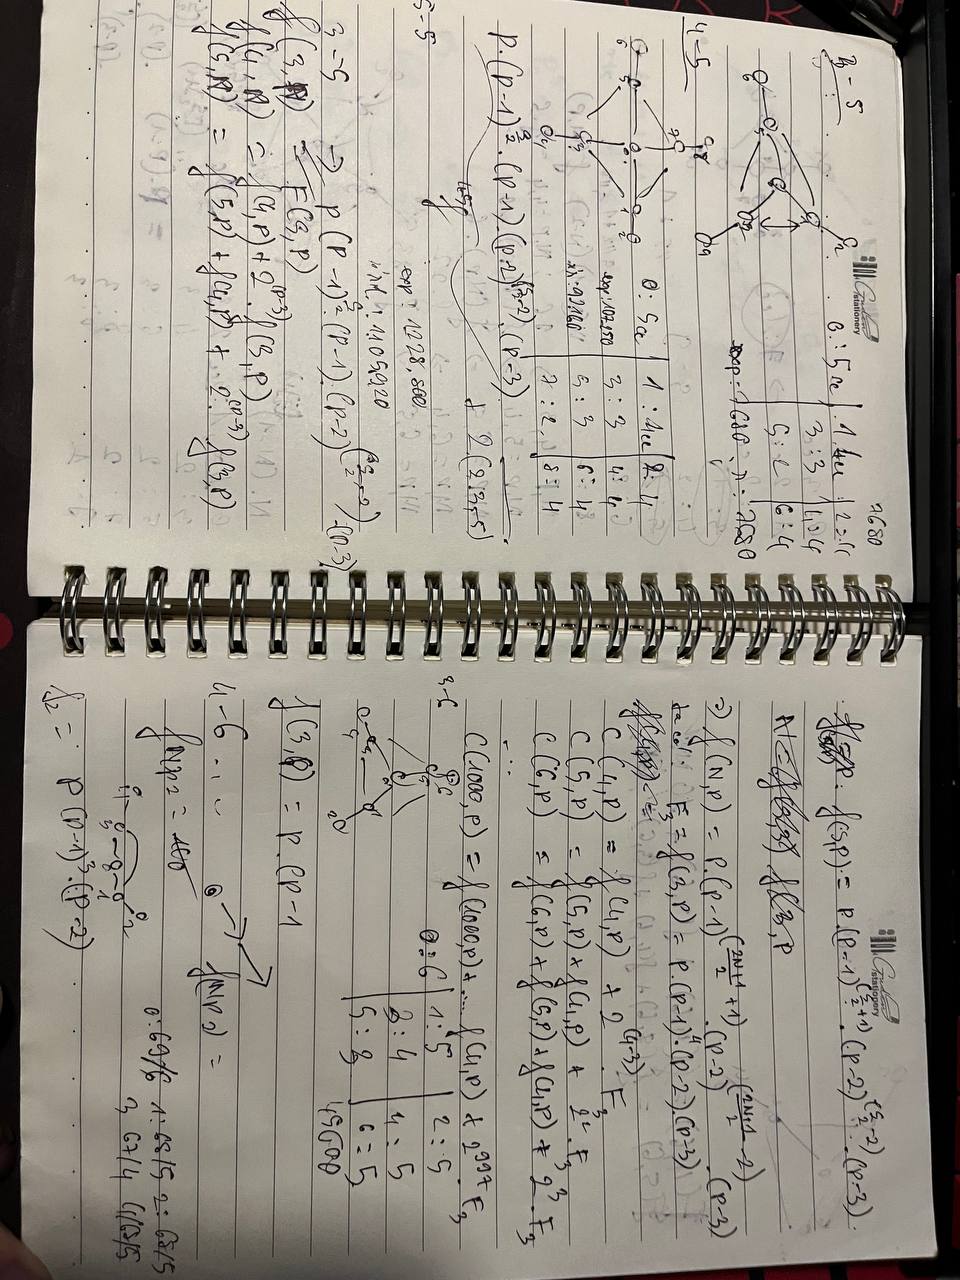 Gruden stationery
7680
3-5
0:5cc 1:4cc 2:cc
3:3 4:4
5:2 6:4
exp: 7680 7680
4-5
0:5cc 1:4cc 2:4
exp: 107250 3:3 4:4
92160 5:3 6:4
7:2 8:4
P.(P-1)^(5/2).(P-1).(P-2)^(5/2-2).(P-3)
5-5
exp: 1228,800
1105920
3-5 → P(P-1)^(5/2).(P-1).(P-2)^(5/2-2).(P-3)
f(3,N) = F(3,P)
f(4,N) = f(4,P)+2^(P-3).f(3,P)
f(5,N) = f(5,P)+f(4,P)+2^(P-3).f(3,P)
Gruden stationery
f(5,P) = P.(P-1)^(5/2+1).(P-2)^(5/2-2).(P-3)
f(3,P
⇒ f(N,P) = P.(P-1)^((2N+1)/2+1).(P-2)^((2N+1)/2-2).(P-3)
ta có: F3 = f(3,P) = P.(P-1)^4.(P-2).(P-3)
C(4,P) = f(4,P) + 2^(4-3).F3
C(5,P) = f(5,P)+f(4,P) + 2^2.F3
C(6,P) = f(6,P)+f(5,P)+f(4,P) + 2^3.F3
...
C(1000,P) = f(1000,P)+.... f(4,P) + 2^997.F3
3-6
0:6 1:5 2:5
3:4 4:5
5:3 6:5
f(3,P) = P.(P-1
4-6 ...
f(NP2) =
fNP2 =
0:69/6 1:68/5 2:68/5
3 67/4 4/67/5
f2 = P(P-1)^3.(P-2)